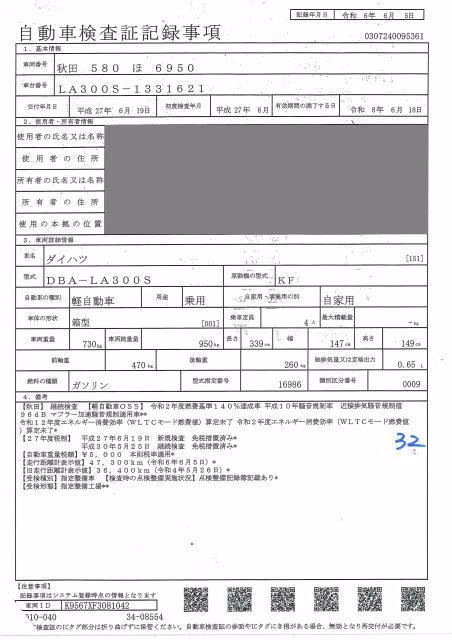 記録年月日 令和 6年 6月 5日
自動車検査証記録事項
0307240095361
1．基本情報
車両番号 秋田 580 ほ 6950
車台番号 LA300S-1331621
交付年月日 平成 27年 6月 19日 初度検査年月 平成 27年 6月 有効期間の満了する日 令和 8年 6月 18日
2．使用者・所有者情報
使用者の氏名又は名称
使用者の住所
所有者の氏名又は名称
所有者の住所
使用の本拠の位置
3．車両詳細情報
車名 ダイハツ [151]
型式 DBA-LA300S 原動機の型式 KF
自動車の種別 軽自動車 用途 乗用 自家用・事業用の別 自家用
車体の形状 箱型 [001] 乗車定員 4人 最大積載量 -kg
車両重量 730kg 車両総重量 950kg 長さ 339cm 幅 147cm 高さ 149cm
前軸重 470kg 後軸重 260kg 総排気量又は定格出力 0.65 L
燃料の種類 ガソリン 型式指定番号 16986 類別区分番号 0009
4．備考
【秋田】 継続検査 【軽自動車OSS】 令和2年度燃費基準140%達成車 平成10年騒音規制車 近接排気騒音規制値
96dB マフラー加速騒音規制適用車**
令和12年度エネルギー消費効率（WLTCモード燃費値）算定未了 令和2年度エネルギー消費効率（WLTCモード燃費値
）算定未了*
【27年度税制】 平成27年6月19日 新規検査 免税措置済み*
平成30年5月25日 継続検査 免税措置済み*
32
【自動車重量税額】¥5,000 本則税率適用*
【走行距離計表示値】47,300km（令和6年6月5日）*
【旧走行距離計表示値】36,400km（令和4年5月26日）*
【受検種別】指定整備車 【検査時の点検整備実施状況】点検整備記録簿記載あり*
【受検形態】指定整備工場**
【注意事項】
記載事項はシステム登録時点の情報となります
車両ID K9567XF3081042
010-040 34-08554
検査証のICタグ部分は折り曲げずに保管ください。自動車検査証の券面やICタグにき損がある場合、無効となり再交付が必要です。